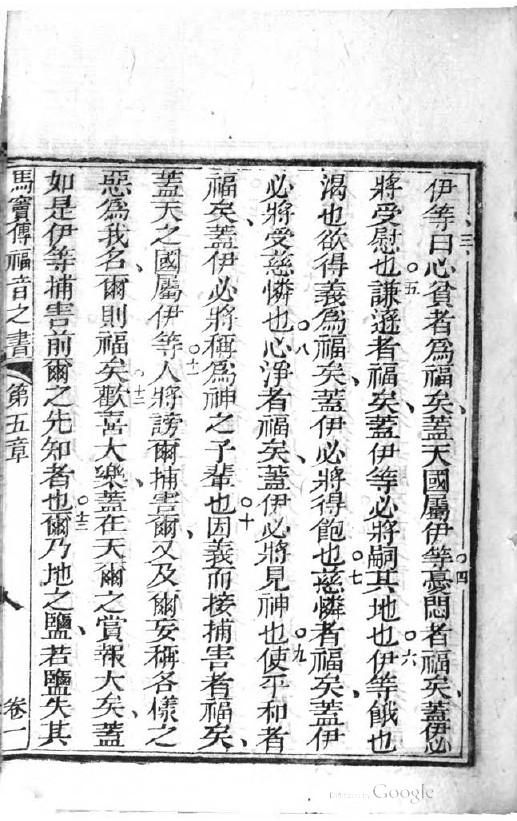 三
伊等曰心貧者爲福矣、蓋天國屬伊等○四憂悶者福矣、蓋伊必
將受慰也○五謙遜者福矣、蓋伊等必將嗣其地也○六伊等餓也
渴也欲得義爲福矣、蓋伊必將得飽也○七慈憐者福矣、蓋伊
必將受慈憐也○八心淨者福矣、蓋伊必將見神也○九使平和者
福矣、蓋伊必將稱爲神之子輩也○十因義而接捕害者福矣、
蓋天之國屬伊等○十一人將謗爾捕害爾、又及爾妄稱各樣之
惡爲我名、爾則福矣○十二歡喜大樂、蓋在天爾之賞報大矣、蓋
如是伊等捕害前爾之先知者也○十三爾乃地之鹽、若鹽失其
馬竇傳福音之書 第五章 卷一
Digitized by Google